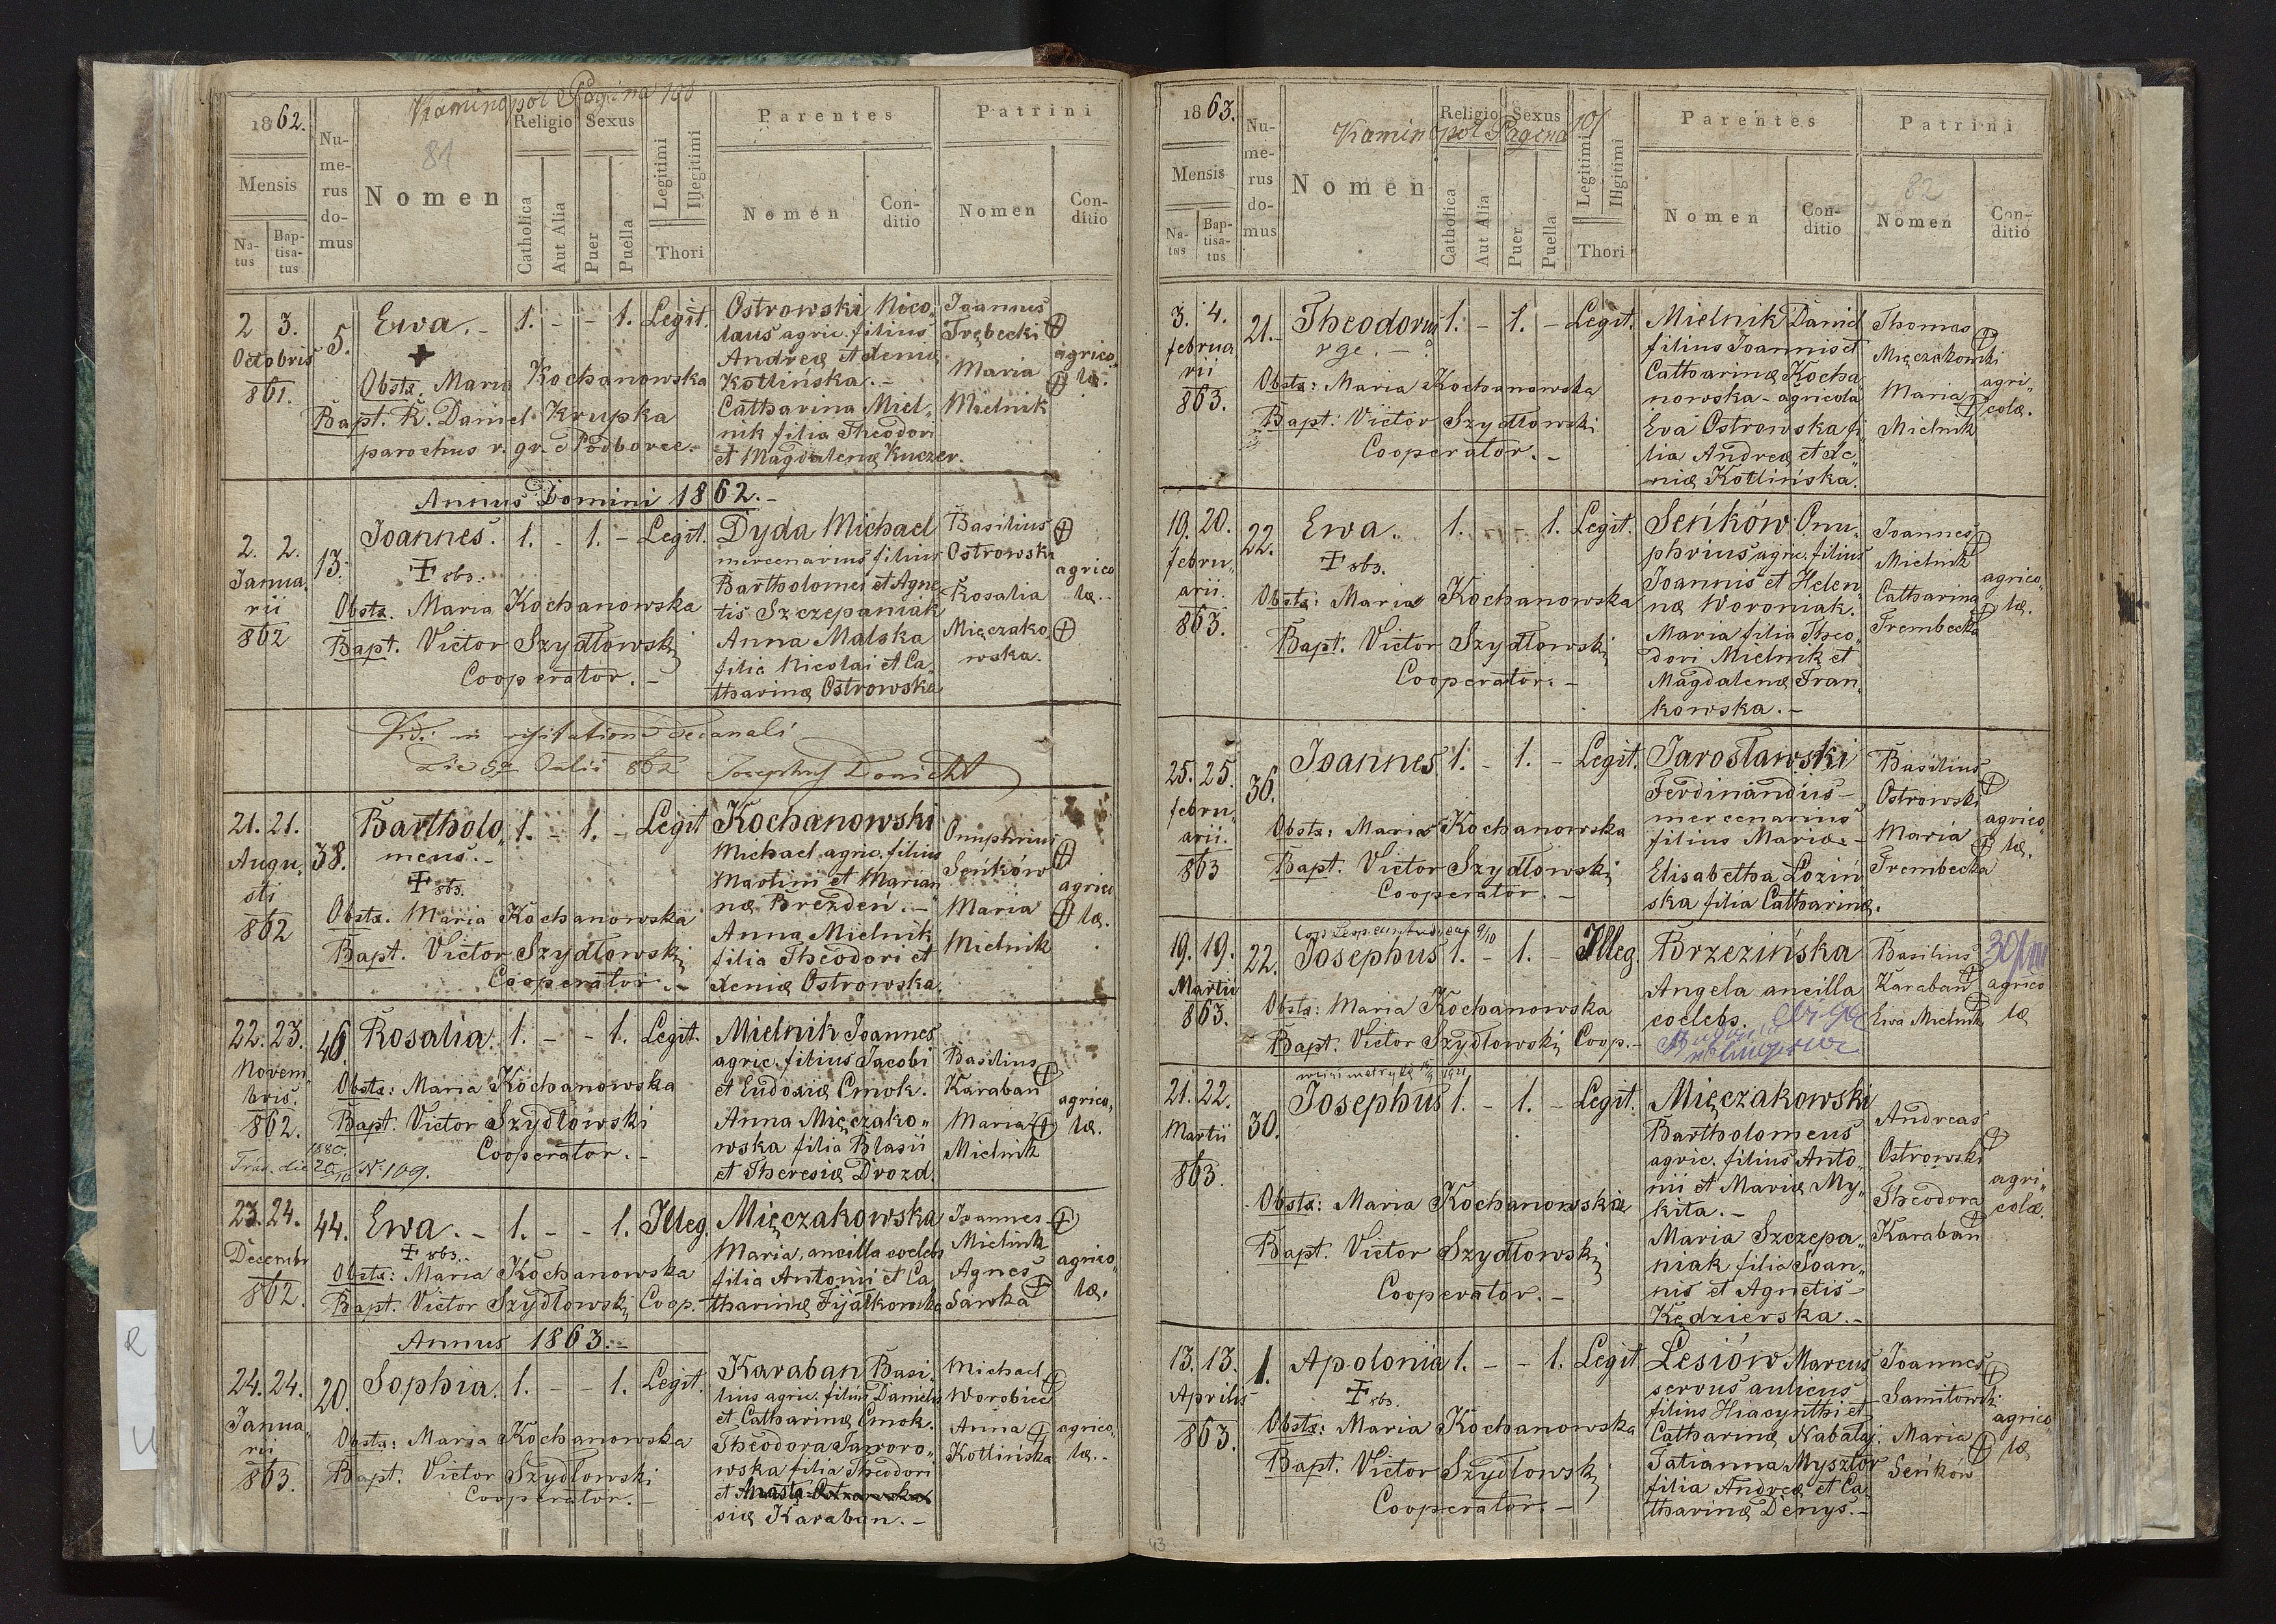 Kaminopol Pagina 100
1862.
81
Nu-
me-
rus
do-
mus
Mensis
Na-
tus
Bap-
tisa-
tus
Nomen
Religio
Catholica
Aut Alia
Sexus
Puer
Puella
Legitimi
Illegitimi
Thori
Parentes
Nomen
Con-
ditio
Patrini
Nomen
Con-
ditio
2 3.
Octobris
861.
5.
Ewa.- 1. - - 1. Legit.
Obstx. Maria Kochanowska
Bapt. R. Daniel Krupka
parochus r. gr. e Podborce.
Ostrowski Nico„
laus agric. filius
Andreæ et Xeniæ
Kotlińska.-
Catharina Miel„
nik filia Theodori
et Magdalenæ Kuczer.
Joannes
Trębecki
Maria
Mielnik
agrico„
læ.
Annus Domini 1862.-
2. 2.
Janua„
rii
862
13.
Joannes. 1. - 1. - Legit.
Obstx. Maria Kochanowska
Bapt. Victor Szydłowski
Cooperator.-
Dyda Michael
mercenarius filius
Bartholomei et Agne„
tis Szczepaniak
Anna Malska
filia Nicolai et Ca„
tharinæ Ostrowska
Basilius
Ostrowski
Rosalia
Mięczako„
wska.
agrico„
læ.
Vidi in visitatione decanali
die 5a Julii 862 Josephus
21. 21.
Augu„
sti
862
38.
Bartholo„ 1. - 1. - Legit
meus.-
Obstx. Maria Kochanowska
Bapt. Victor Szydłowski
Cooperator.-
Kochanowski
Michael agric. filius
Martini et Marian„
næ Brezdeń.-
Anna Mielnik
filia Theodori et
Xeniæ Ostrowska.
Onuphrius
Seńków
Maria
Mielnik
agrico„
læ.
22. 23.
Novem„
bris.
862.
46.
Rosalia. 1. - - 1. Legit.
Obstx: Maria Kochanowska
Bapt. Victor Szydłowski
Cooperator.-
1880.
Trad. die 20/10 No 109.
Mielnik Joannes
agric. filius Jacobi
et Eudoxiæ Cmok.
Anna Mięczako„
wska filia Blasii
et Theresiæ Drozd.
Basilius
Karaban
Maria
Mielnik
agrico„
læ.
23. 24.
Decembr
862.
44.
Ewa.- 1. - - 1. Illeg.
Obstx: Maria Kochanowska
Bapt. Victor Szydłowski Coop.-
Mięczakowska
Maria, ancilla coelebs
filia Antonii et Ca„
tharinæ Fijałkowska
Joannes
Mielnik
Agnes
Sawka
agrico„
læ.
Annus 1863.-
24. 24.
Janua„
rii
863.
20.
Sophia. 1. - - 1. Legit.
Obstx: Maria Kochanowska
Bapt. Victor Szydłowski
Cooperator.-
Karaban Basi„
lius agric. filius Danielis
et Catharinæ Cmok.
Theodora Jaworo„
wska filia Theodori
et Anasta
siæ Karaban.-
Michael
Worobiec
Anna
Kotlińska
agrico„
læ.-
Kaminopol Pagina 101
1863.
82
Nu-
me-
rus
do-
mus
Mensis
Na-
tus
Bap-
tisa-
tus
Nomen
Religio
Catholica
Aut Alia
Sexus
Puer
Puella
Legitimi
Illgitimi
Thori
Parentes
Nomen
Con-
ditio
Patrini
Nomen
Con-
ditio
3. 4.
februa„
rii
863.
21.
Theodorus 1. - 1. - Legit.
Obstx: Maria Kochanowska
Bapt: Victor Szydłowski
Cooperator.-
Mielnik Daniel
filius Joannis et
Catharinæ Kocha„
nowska - agricola
Eva Ostrowska fi„
lia Andreæ et Xe„
niæ Kotlińska.
Thomas
Mięczakowski
Maria
Mielnik
agri„
colæ.
19. 20.
febru„
arii.
863.
22.
Ewa. 1. - - 1. Legit.
Obstx: Maria Kochanowska
Bapt. Victor Szydłowski
Cooperator.-
Seńków Onu„
phrius agric. filius
Joannis et Helen„
næ Woroniak.
Maria filia Theo„
dori Mielnik et
Magdalenæ Fran„
kowska.-
Joannes
Mielnik
Catharina
Trembecka
agrico„
læ.
25. 25.
febru„
arii.
863
36.
Joannes 1. - 1. - Legit.
Obstx: Maria Kochanowska
Bapt. Victor Szydłowski
Cooperator.-
Jarosławski
Ferdinandus-
mercenarius
filius Mariæ.-
Elisabetha Loziń„
ska filia Catharinæ.
Basilius
Ostrowski
Maria
Trembecka
agrico„
læ.
19. 19.
Martii
863.
22.
Josephus 1. - 1. - Illeg.
Obstx: Maria Kochanowska
Bapt. Victor Szydłowski Coop.-
Brzezińska
Angela ancilla
coelebs.
Basilius
Karaban
Ewa Mielnik
agrico„
læ
21. 22.
Martii
863.
30.
Josephus 1. - 1. - Legit.
Obstx: Maria Kochanowska
Bapt. Victor Szydłowski
Cooperator.-
Mięczakowski
Bartholomeus
agric. filius Anto„
nii et Mariæ My„
kita.-
Maria Szczepa„
niak filia Joan„
nis et Agnetis-
Kędzierska.-
Andreas
Ostrowski
Theodora
Karaban
agri„
colæ.
13. 13.
Aprilis
863.
1.
Apolonia 1. - - 1. Legit
Obstx: Maria Kochanowska
Bapt. Victor Szydłowski
Cooperator.-
Lesiów Marcus
servus aulicus
filius Hiacynthi et
Catharinæ Nabałaj.
Tatianna Mysztor
filia Andreæ et Ca„
tharinæ Denys.-
Joannes
Samitowski
Maria
Seńków
agrico„
læ
43